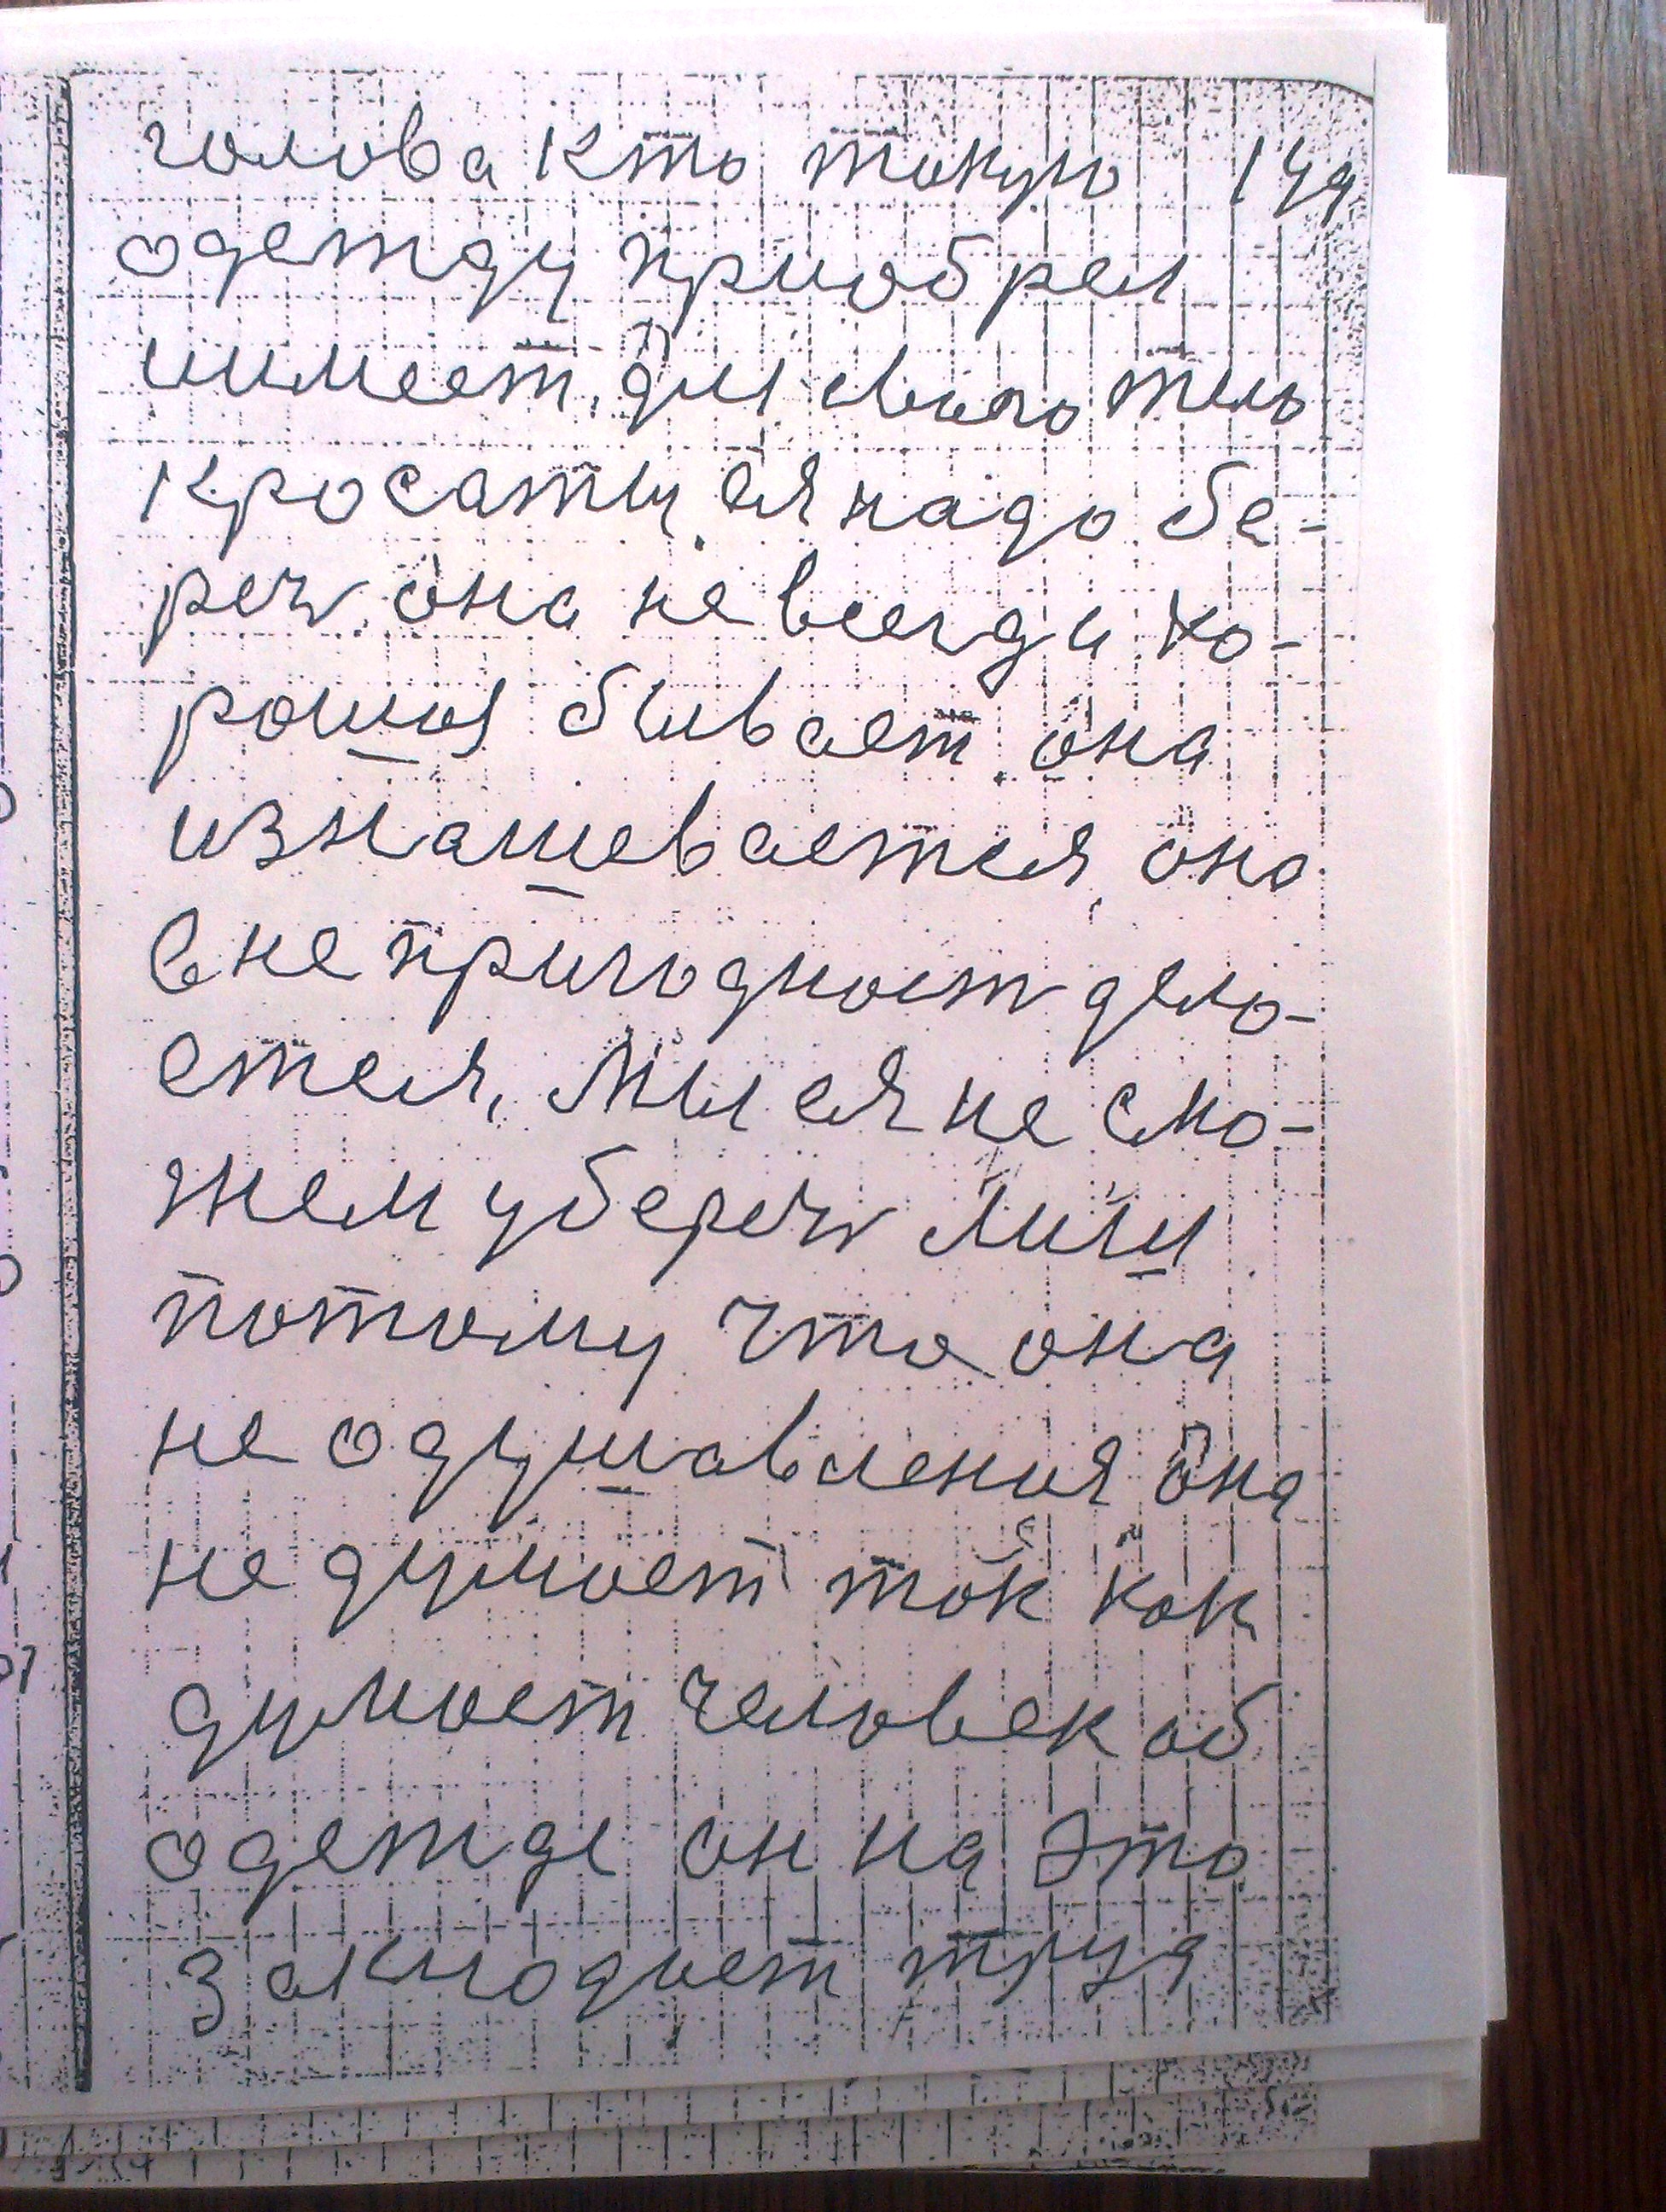 голова кто такую 149
одетду приобрел
иимеет, для своего тела
кросаты ея надо бе-
речь. она не всегда хо-
рошоя бывает она
изнашевается, она
в не пригодност дело-
ется, Мы ея не смо-
жем уберечь
потому что она
не одушавленая она
не думает ток как
думает человек об
одетде он на это
закладует труд